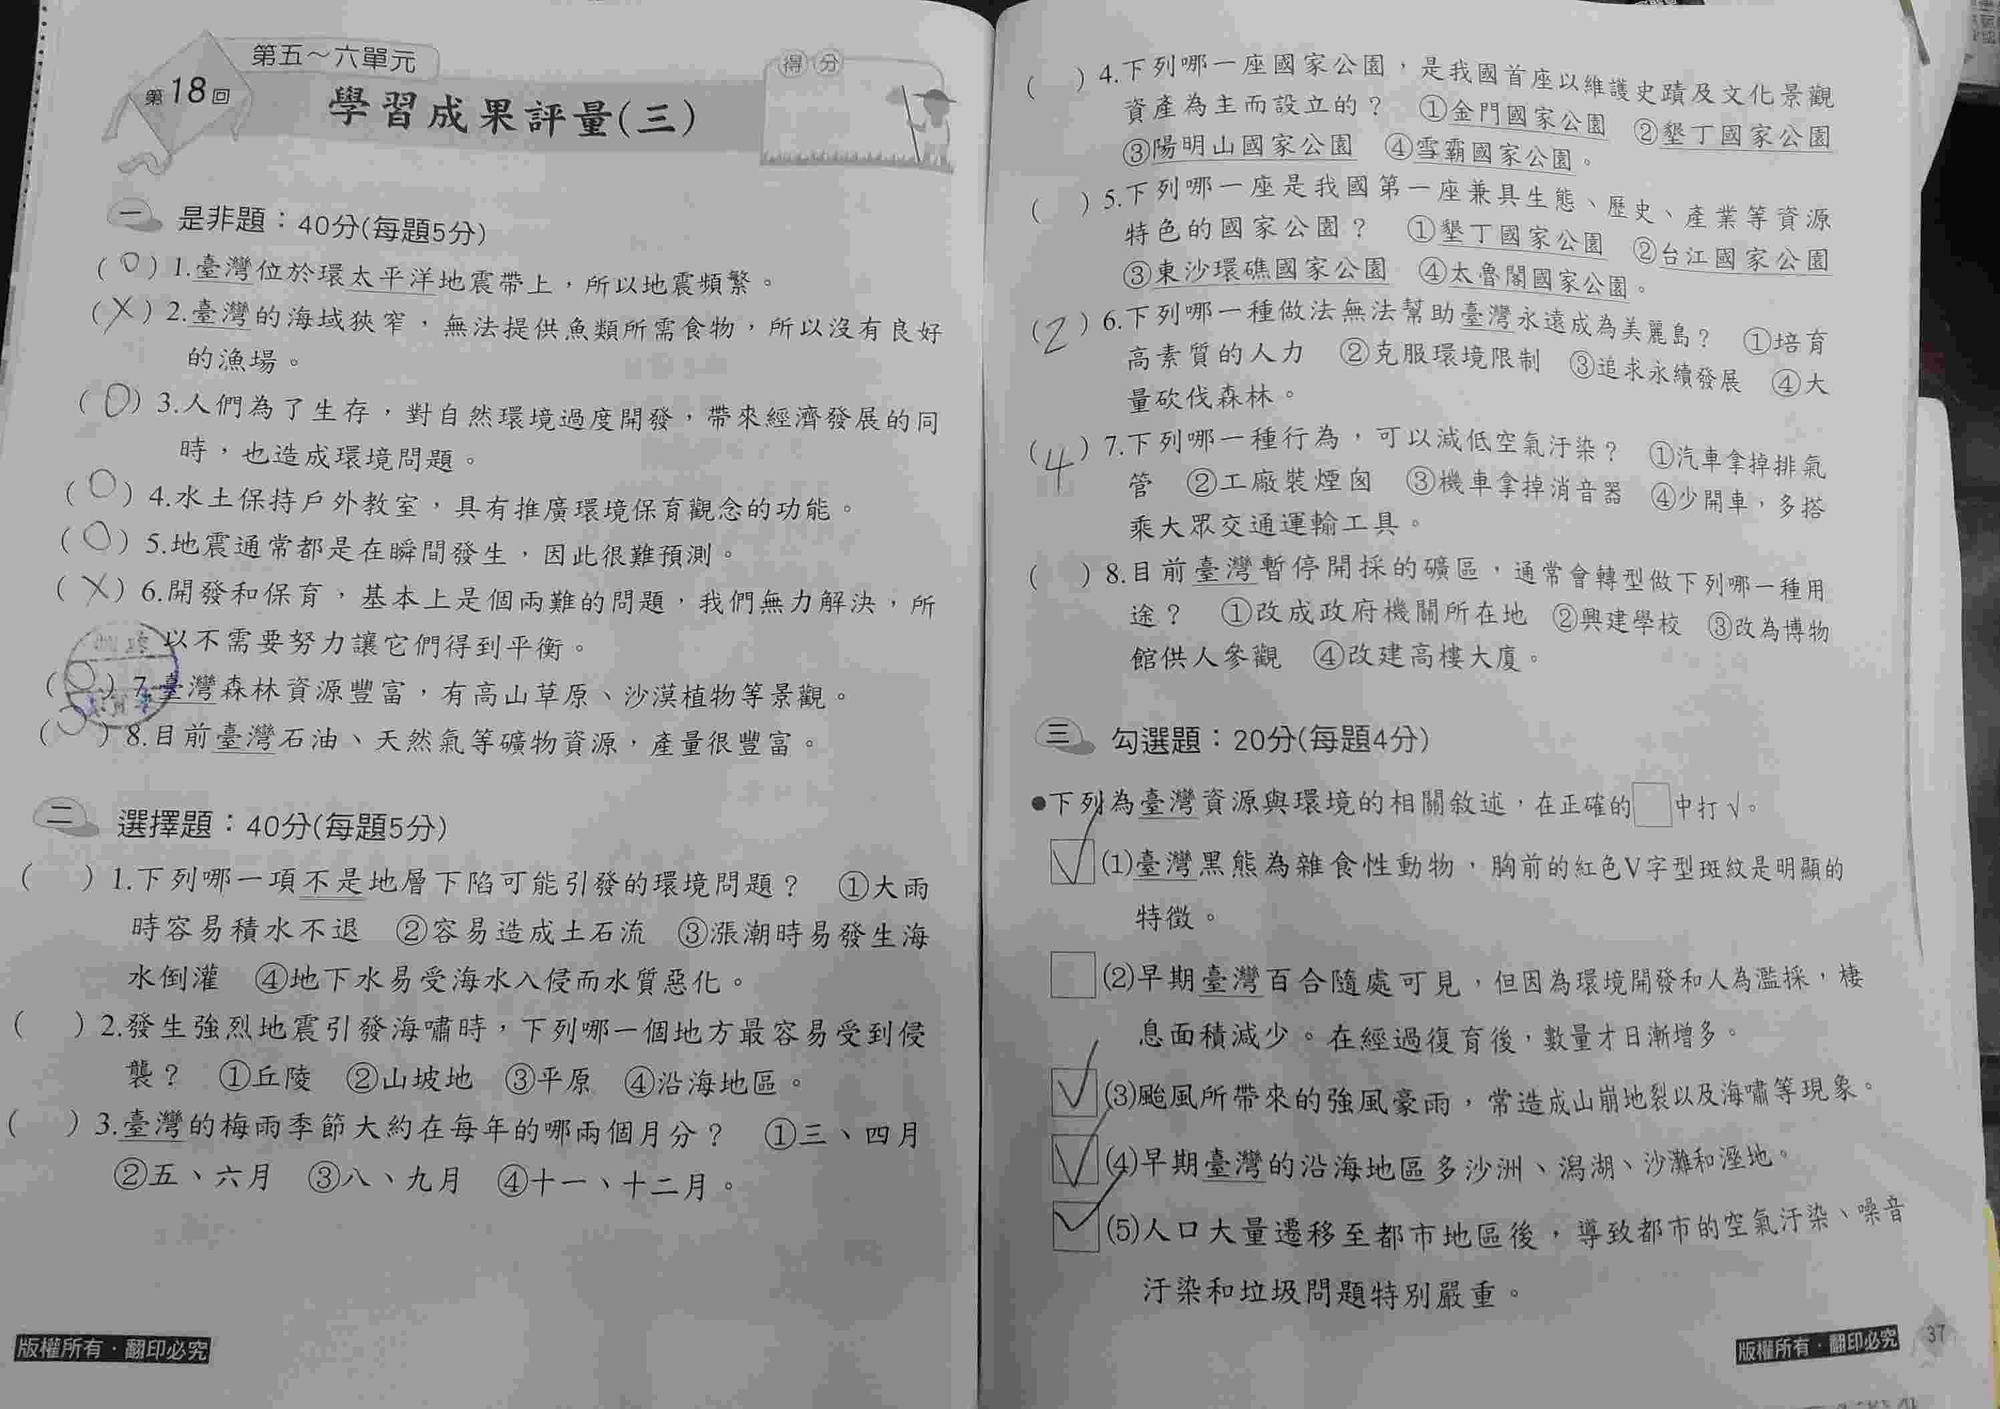 第五～六單元
第18回
學習成果評量(三)
得分
一 是非題：40分(每題5分)
(O)1.臺灣位於環太平洋地震帶上，所以地震頻繁。
(X)2.臺灣的海域狹窄，無法提供魚類所需食物，所以沒有良好
的漁場。
(O)3.人們為了生存，對自然環境過度開發，帶來經濟發展的同
時，也造成環境問題。
(O)4.水土保持戶外教室，具有推廣環境保育觀念的功能。
(O)5.地震通常都是在瞬間發生，因此很難預測。
(X)6.開發和保育，基本上是個兩難的問題，我們無力解決，所
以不需要努力讓它們得到平衡。
(O)7.臺灣森林資源豐富，有高山草原、沙漠植物等景觀。
(O)8.目前臺灣石油、天然氣等礦物資源，產量很豐富。
二 選擇題：40分(每題5分)
( )1.下列哪一項不是地層下陷可能引發的環境問題？ ①大雨
時容易積水不退 ②容易造成土石流 ③漲潮時易發生海
水倒灌 ④地下水易受海水入侵而水質惡化。
( )2.發生強烈地震引發海嘯時，下列哪一個地方最容易受到侵
襲？ ①丘陵 ②山坡地 ③平原 ④沿海地區。
( )3.臺灣的梅雨季節大約在每年的哪兩個月分？ ①三、四月
②五、六月 ③八、九月 ④十一、十二月。
版權所有·翻印必究
( )4.下列哪一座國家公園，是我國首座以維護史蹟及文化景觀
資產為主而設立的？ ①金門國家公園 ②墾丁國家公園
③陽明山國家公園 ④雪霸國家公園。
( )5.下列哪一座是我國第一座兼具生態、歷史、產業等資源
特色的國家公園？ ①墾丁國家公園 ②台江國家公園
③東沙環礁國家公園 ④太魯閣國家公園。
(2)6.下列哪一種做法無法幫助臺灣永遠成為美麗島？ ①培育
高素質的人力 ②克服環境限制 ③追求永續發展 ④大
量砍伐森林。
(4)7.下列哪一種行為，可以減低空氣汙染？ ①汽車拿掉排氣
管 ②工廠裝煙囪 ③機車拿掉消音器 ④少開車，多搭
乘大眾交通運輸工具。
( )8.目前臺灣暫停開採的礦區，通常會轉型做下列哪一種用
途？ ①改成政府機關所在地 ②興建學校 ③改為博物
館供人參觀 ④改建高樓大廈。
三 勾選題：20分(每題4分)
●下列為臺灣資源與環境的相關敘述，在正確的□中打√。
☑(1)臺灣黑熊為雜食性動物，胸前的紅色V字型斑紋是明顯的
特徵。
□(2)早期臺灣百合隨處可見，但因為環境開發和人為濫採，棲
息面積減少。在經過復育後，數量才日漸增多。
☑(3)颱風所帶來的強風豪雨，常造成山崩地裂以及海嘯等現象。
☑(4)早期臺灣的沿海地區多沙洲、潟湖、沙灘和溼地。
☑(5)人口大量遷移至都市地區後，導致都市的空氣汙染、噪音
汙染和垃圾問題特別嚴重。
版權所有·翻印必究
37